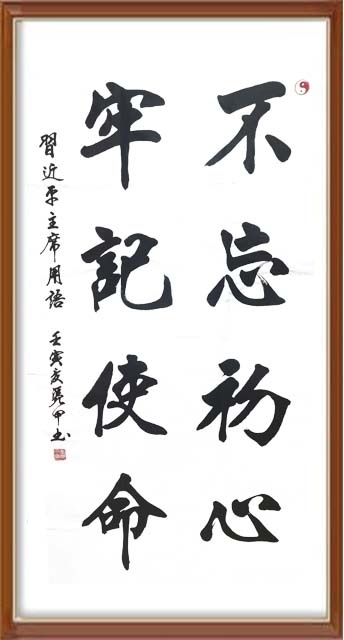 不忘初心
牢記使命
習近平主席用語
壬寅友吳甲书